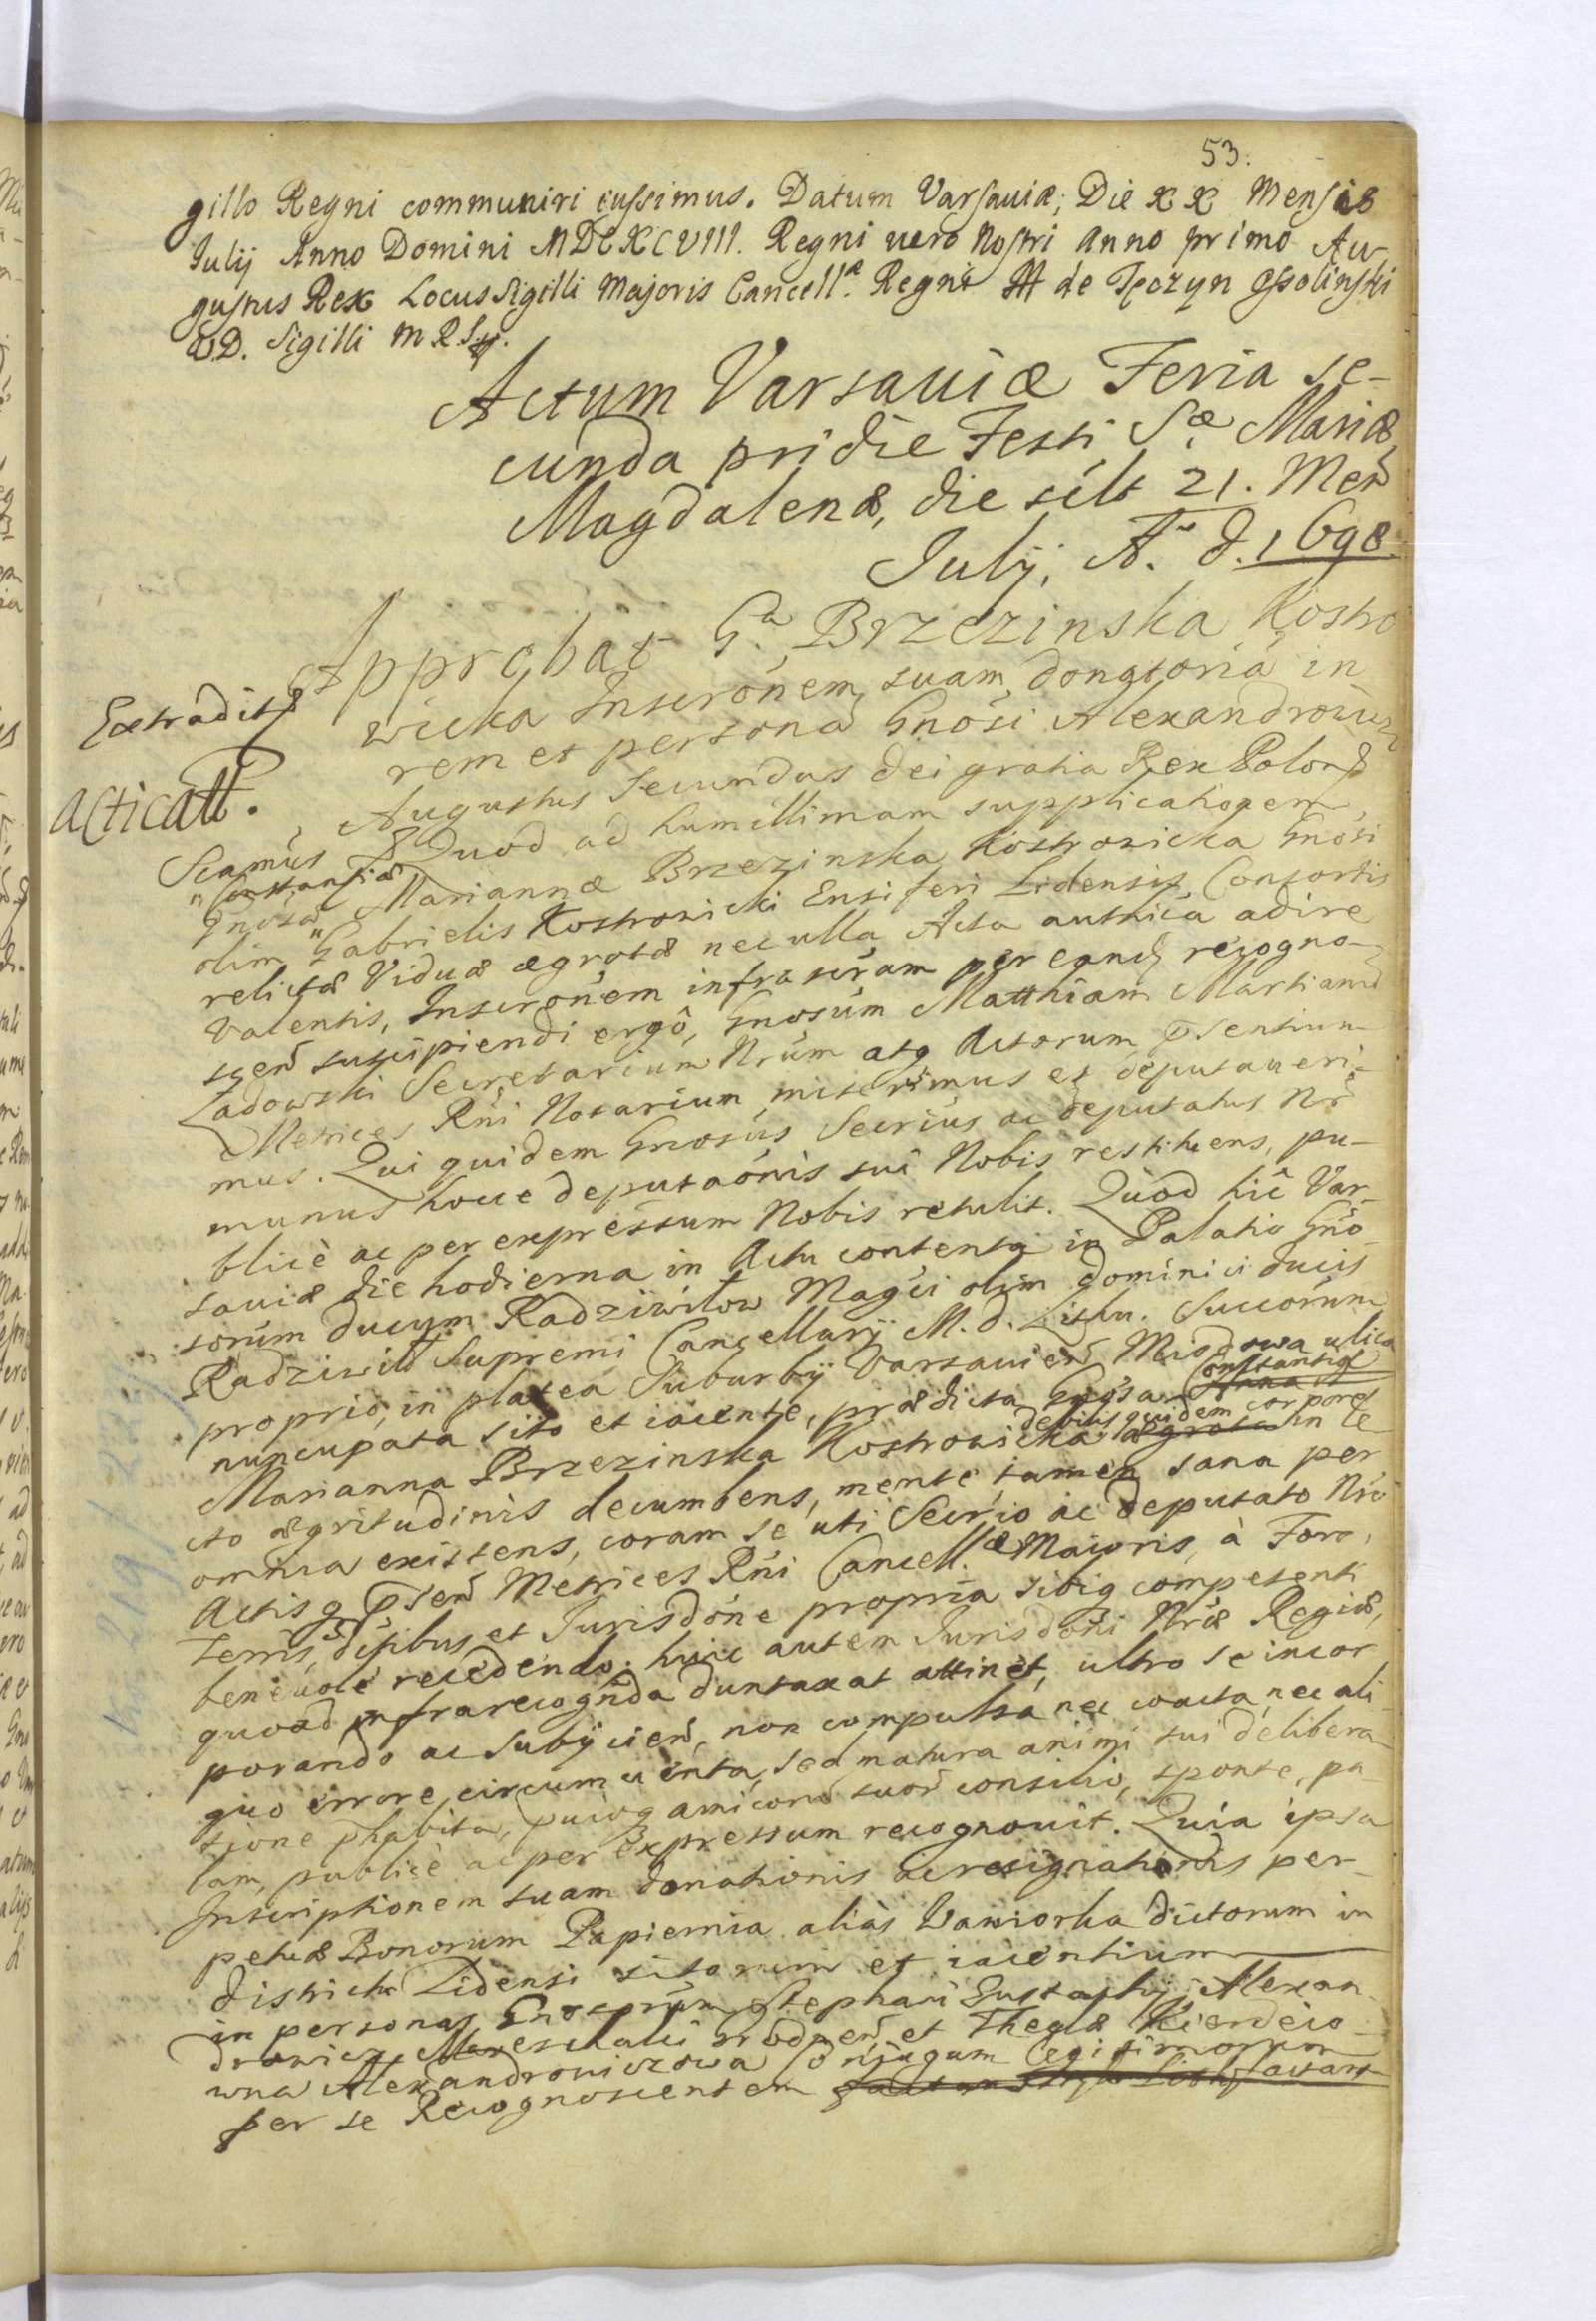 53.
gillo Regni communiri iussimus. Datum Varsaviæ, Die XX Mensis
Iulij Anno Domini MDCXCVIII. Regni vero Nostri Anno primo Au-
gustus Rex Locus Sigilli Majoris Cancell.æ Regni de Tęczyn Ossolinski
S.D. Sigilli M R S.
Actum Varsaviæ Feria se-
cunda pridie Festi S.æ Mariæ
Magdalenæ, die silt 21. Meñ
Iulij, A.º d. 1698.
Approbat G.a Brzezinska Kostro
wicka Inscronem suam donatoria in
rem et persona Gnosi Alexandrowicz
Extradit
Acticatt.
Augustus Secundus dei gratia Rex Polon
Scamus Quod ad humillimam supplicationem,
"Constantiæ
Gnosæ" Mariannæ Brzezinska Kostrowicka Gnosi
olim Gabrielis Kostrowicki Ensiferi Lidensis, Consortis
relictæ Viduæ ægrotæ nec ulla Acta authica adire
valentis, Inscronem infrascram per eand recogno-
scen suscipiendi ergô, Gnosum Matthiam Martianu
Ladowski Secretarium Nrum atq Actorum psentium
Metrices Rni Notarium, miserimus et deputaueri-
mus. Qui quidem Gnosus Secrius ac deputatus Nr
munus hocce deputaonis sui Nobis restituens, pu-
blicè ac per expressum Nobis retulit. Quod hic Var-
saviæ die hodierna in Actu contenta in Palatio Gno-
sorum ducum Radziwilow Magci olim dominici ducis
Radziwill Supremi Cancellarij M. d. Lithu. Succorum
proprio, in platea Suburbij Varsavien Miodowa ulica
nuncupata sito et iacente, prædicta Gnosa Constantia
Anna
Marianna Brzezinska Kostrowicka debilis quidem corpore
ægrota in le-
cto ægritudinis decumbens, mente tamen sana per
omnia existens, coram se uti Secrio ac deputato Nro
Actisq psen Metrices Rni Cancell.æ Maioris, à Foro,
Terris, et Iurisdone propria sibiq competenti
benevole recedendo, huic autem Iurisdoni Nræ Regiæ,
quoad infrarecognda duntaxat attinet, ultro se incor
porando ac subijcien, non compulsa nec coacta, nec ali-
quo errore circumuenta, sed matura animi sui delibera
tione phabita, amicoru suor consilio, sponte, pa-
lam, publicè ac per expressum recognouit. Quia ipsa
Inscriptionem suam donationis ac resignationis per-
petuæ Bonorum Papiernia alias Wawiorka dictorum in
districtu Lidensi sitorum et iacentium
in personas Gnosorum Stephani Eustachij Alexan-
drowicz Mareschalci et Theglæ Kierdeio-
wna Alexandrowiczowa Conjugum legitimorum
per se Recognoscentem